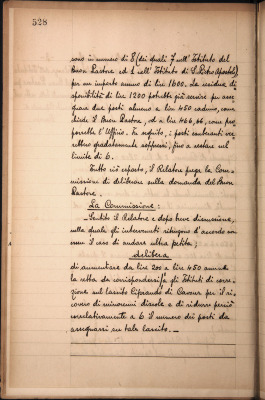 528
sono in numero di 8 (dei quali 7 nell'Istituto del
Buon Pastore ed 1 nell'Istituto di S. Pietro Apostolo)
per un importo annuo di lire 1600. La residua di-
sponibilità di lire 1200 potrebbe già servire per asse-
gnare due posti almeno a lire 450 caduno, come
chiede il Buon Pastore, od a lire 466,66, come pro-
porrebbe l'Ufficio. In seguito, i posti esuberanti ver-
rebbero gradatamente soppressi, fino a restare nel
limite di 6.
Tutto ciò esposto, il Relatore prega la Com-
missione di deliberare sulla domanda del Buon
Pastore.
La Commissione:
Sentito il Relatore e dopo breve discussione,
nella quale gli intervenuti ritengono d'accordo non
essere il caso di andare ultra petita;
delibera
di aumentare da lire 200 a lire 450 annue
la retta da corrispondersi agli Istituti di corre-
zione sul lascito Cipriando di Cavour per il ri-
covero di minorenni discole e di ridurre perciò
correlativamente a 6 il numero dei posti da
assegnarsi su tale lascito. _